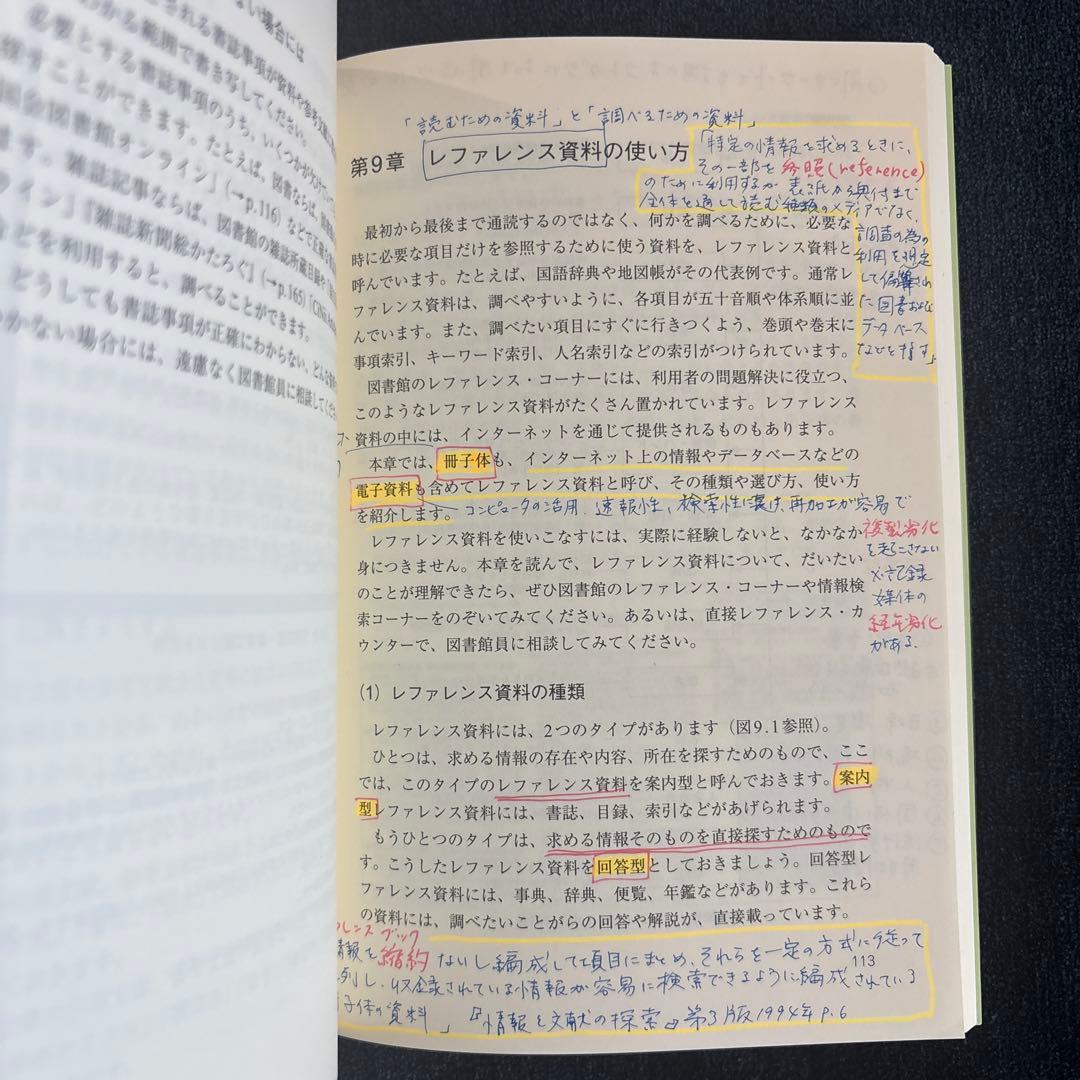 ない場合には
される書誌事項が資料や参考文献
わかる範囲で書き写してください。
必要とする書誌事項のうち、いくつかが欠け
探すことができます。たとえば、図書ならば、国
国会図書館オンライン」(→p.116)などで正確な
ます。雑誌記事ならば、図書館の雑誌所蔵目録や
ライン」「雑誌新聞総かたろぐ」(→p.165)「CiNii
などを利用すると、調べることができます。
どうしても書誌事項が正確にわからない、どんな
つかない場合には、遠慮なく図書館員に相談してくだ
「読むための資料」と「調べるための資料」
第9章 レファレンス資料の使い方
「特定の情報を求めるときに、
その一部を参照(reference)
のために利用するが表紙から奥付まで
全体を通して読む種類のメディアでなく、
調査の為の
利用を想定
して編纂され
た図書および
データベース
などを指す」
最初から最後まで通読するのではなく、何かを調べるために、必要な
時に必要な項目だけを参照するために使う資料を、レファレンス資料と
呼んでいます。たとえば、国語辞典や地図帳がその代表例です。通常レ
ファレンス資料は、調べやすいように、各項目が五十音順や体系順に並
んでいます。また、調べたい項目にすぐに行きつくよう、巻頭や巻末に
事項索引、キーワード索引、人名索引などの索引がつけられています。
図書館のレファレンス・コーナーには、利用者の問題解決に役立つ、
このようなレファレンス資料がたくさん置かれています。レファレンス
資料の中には、インターネットを通じて提供されるものもあります。
本章では、冊子体も、インターネット上の情報やデータベースなどの
電子資料も含めてレファレンス資料と呼び、その種類や選び方、使い方
を紹介します。
コンピュータの活用、速報性、検索性に長け、再加工が容易で
複製劣化
を起こさない
×記録
媒体の
経年劣化
がある。
レファレンス資料を使いこなすには、実際に経験しないと、なかなか
身につきません。本章を読んで、レファレンス資料について、だいたい
のことが理解できたら、ぜひ図書館のレファレンス・コーナーや情報検
索コーナーをのぞいてみてください。あるいは、直接レファレンス・カ
ウンターで、図書館員に相談してみてください。
(1) レファレンス資料の種類
レファレンス資料には、2つのタイプがあります(図9.1参照)。
ひとつは、求める情報の存在や内容、所在を探すためのもので、ここ
では、このタイプのレファレンス資料を案内型と呼んでおきます。案内
型レファレンス資料には、書誌、目録、索引などがあげられます。
もうひとつのタイプは、求める情報そのものを直接探すためのもので
す。こうしたレファレンス資料を回答型としておきましょう。回答型レ
ファレンス資料には、事典、辞典、便覧、年鑑などがあります。これら
の資料には、調べたいことがらの回答や解説が、直接載っています。
レンスブック
情報を縮約ないし編成して項目にまとめ、それらを一定の方式に従って
列し、収録されている情報が容易に検索できるように編成されている
子体の資料」『情報と文献の探索』第3版1994年P.6
113